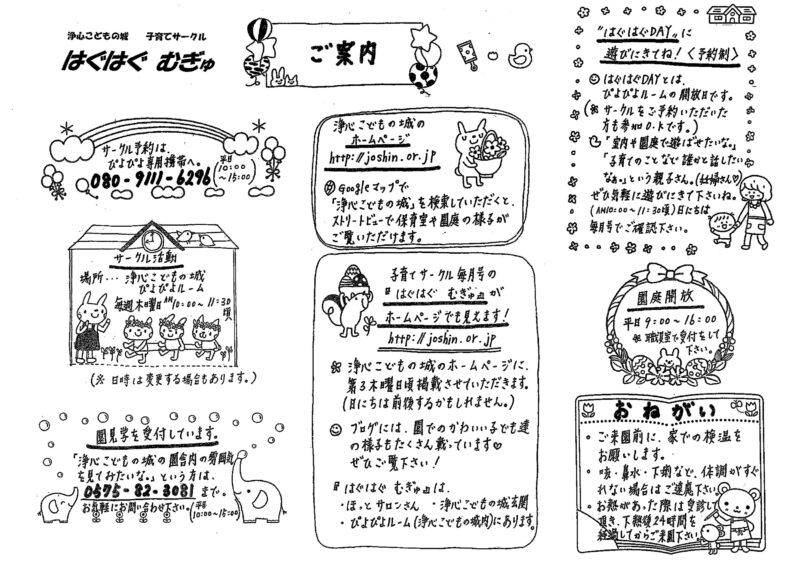 浄心こどもの城 子育てサークル
はぐはぐ むぎゅ
ご案内
サークル予約は、
ぴよぴよ専用携帯へ。
080-9111-6296
(平日
10:00
～15:00)
サークル活動
場所…浄心こどもの城
ぴよぴよルーム
毎週木曜日AM10:00～11:30
頃
(※ 日時は変更する場合もあります。)
園見学を受付しています。
「浄心こどもの城の園舎内の雰囲気
を見てみたいな。」という方は、
0575-82-3081 まで。
お気軽にお問い合わせ下さい。(平日
10:00～15:00)
浄心こどもの城の
ホームページ
http://joshin.or.jp
Googleマップで
「浄心こどもの城」を検索していただくと、
ストリートビューで保育室や園庭の様子が
ご覧いただけます。
子育てサークル毎月号の
『はぐはぐ むぎゅ』が
ホームページでも見えます!
http://joshin.or.jp
浄心こどもの城のホームページに、
第3木曜日頃掲載させていただきます。
(日にちは前後するかもしれません。)
ブログには、園でのかわいい子ども達
の様子もたくさん載っています♡
ぜひご覧下さい!
『はぐはぐ むぎゅ』は、
・ほっとサロンさん ・浄心こどもの城玄関
・ぴよぴよルーム(浄心こどもの城内)にあります。
"はぐはぐDAY"に
遊びにきてね!〈予約制〉
はぐはぐDAYとは、
ぴよぴよルームの開放日です。
(※ サークルをご予約いただいた
方も参加OKです。)
「室内や園庭で遊ばせたいな。」
「子育てのことなど誰かと話したい
なぁ。」という親子さん。(妊婦さん♡)
ぜひ気軽に遊びにきて下さいね。
(AM10:00～11:30頃)日にちは
毎月号でご確認下さい。
園庭開放
平日 9:00～16:00
※ 職員室で受付をして
下さい。
おねがい
・ご来園前に、家での検温を
お願いします。
・咳・鼻水・下痢など、体調がすぐ
れない場合はご遠慮下さい。
・お熱があった際は受診して
頂き、下熱後24時間を
経過してからご来園下さい。